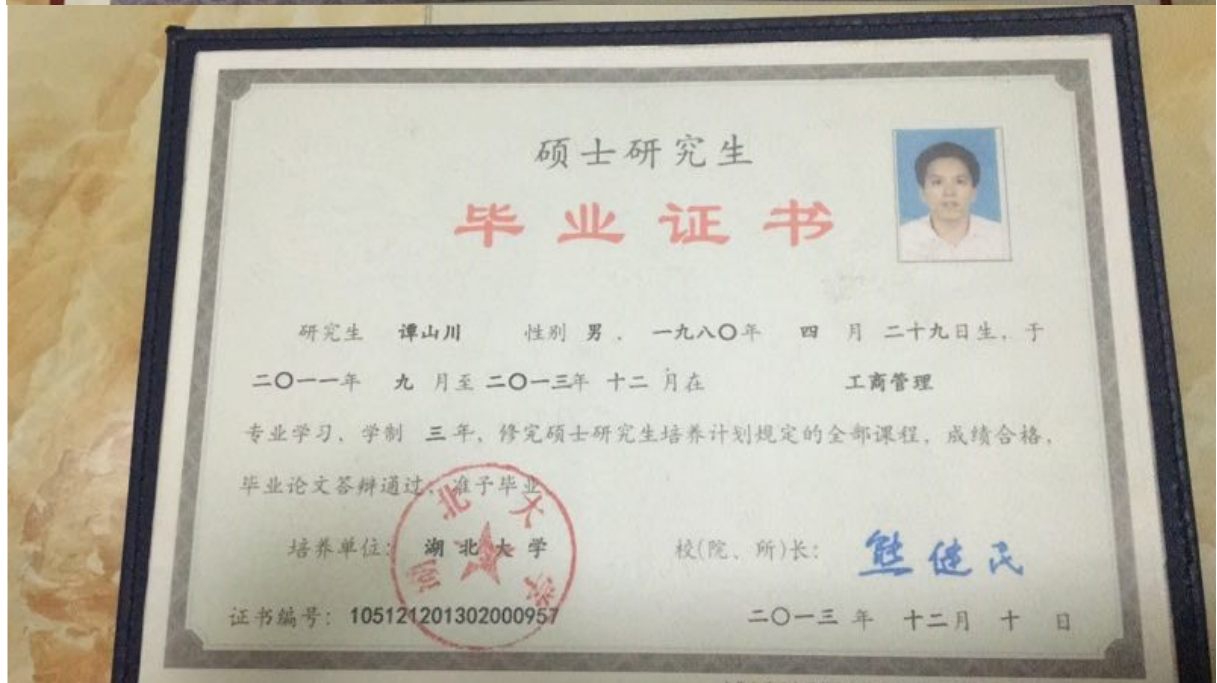 硕士研究生
毕业证书
研究生 谭山川 性别 男 , 一九八〇年 四 月 二十九日生, 于
二〇一一年 九 月至 二〇一三年 十二 月在 工商管理
专业学习, 学制 三 年, 修完硕士研究生培养计划规定的全部课程, 成绩合格,
毕业论文答辩通过, 准予毕业
培养单位: 湖北大学 校(院、所)长: 熊健民
湖北大学
证书编号: 105121201302000957 二〇一三 年 十二月 十 日